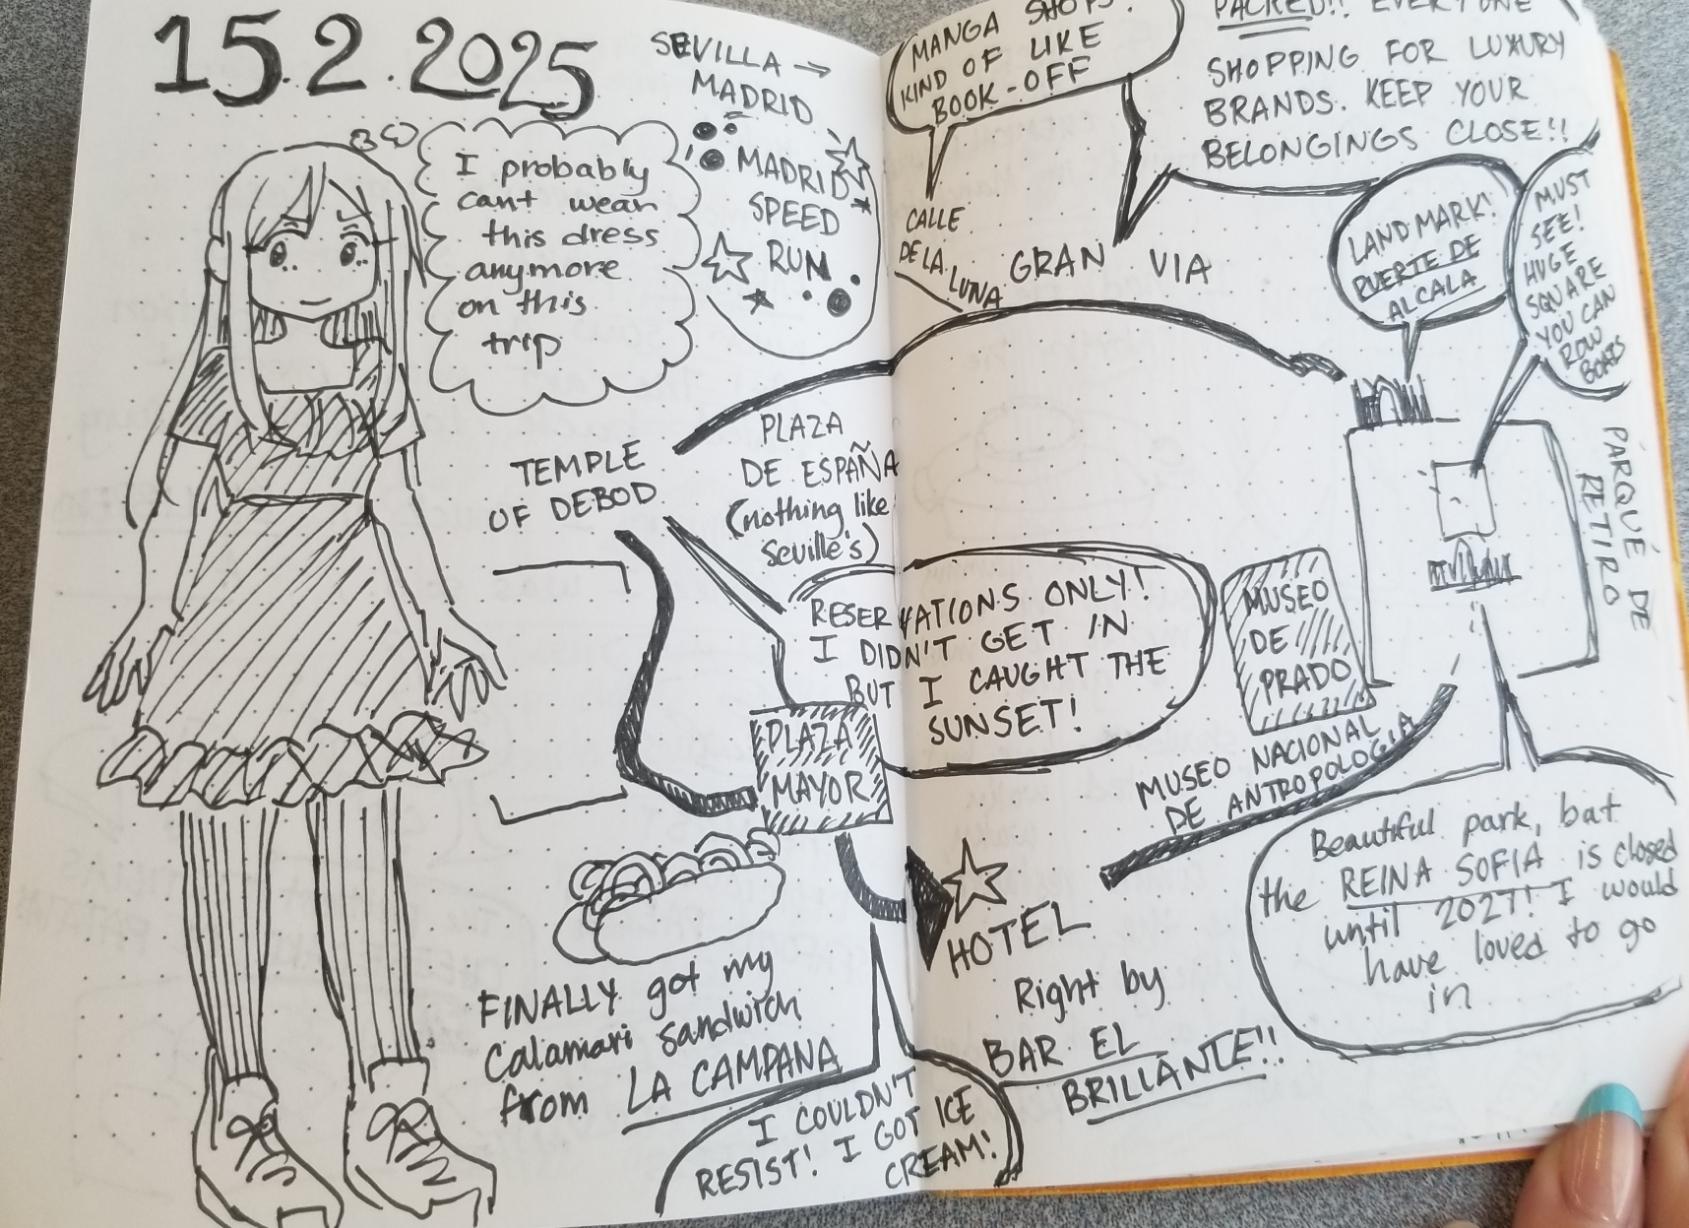 15.2.2025
SEVILLA →
MADRID
I probably
cant wear
this dress
anymore
on this
trip
MADRID
SPEED
RUN
MANGA SHOPS!
KIND OF LIKE
BOOK-OFF
PACKED!! EVERYONE
SHOPPING FOR LUXURY
BRANDS. KEEP YOUR
BELONGINGS CLOSE!!
CALLE
DE LA
LUNA
GRAN VIA
LANDMARK!
PUERTE DE
ALCALA
MUST
SEE!
HUGE
SQUARE
YOU CAN
ROW
BOATS
PARQUÉ DE
RETIRO
TEMPLE
OF DEBOD
PLAZA
DE ESPAÑA
(nothing like
Seville's)
RESERVATIONS ONLY!
I DIDN'T GET IN
BUT I CAUGHT THE
SUNSET!
MUSEO
DE
PRADO
PLAZA
MAYOR
MUSEO NACIONAL
DE ANTROPOLOGIA
Beautiful park, but
the REINA SOFIA is closed
until 2027! I would
have loved to go
in
HOTEL
Right by
BAR EL
BRILLANTE!!
FINALLY got my
Calamari sandwich
from LA CAMPANA
I COULDN'T
RESIST! I GOT ICE
CREAM!